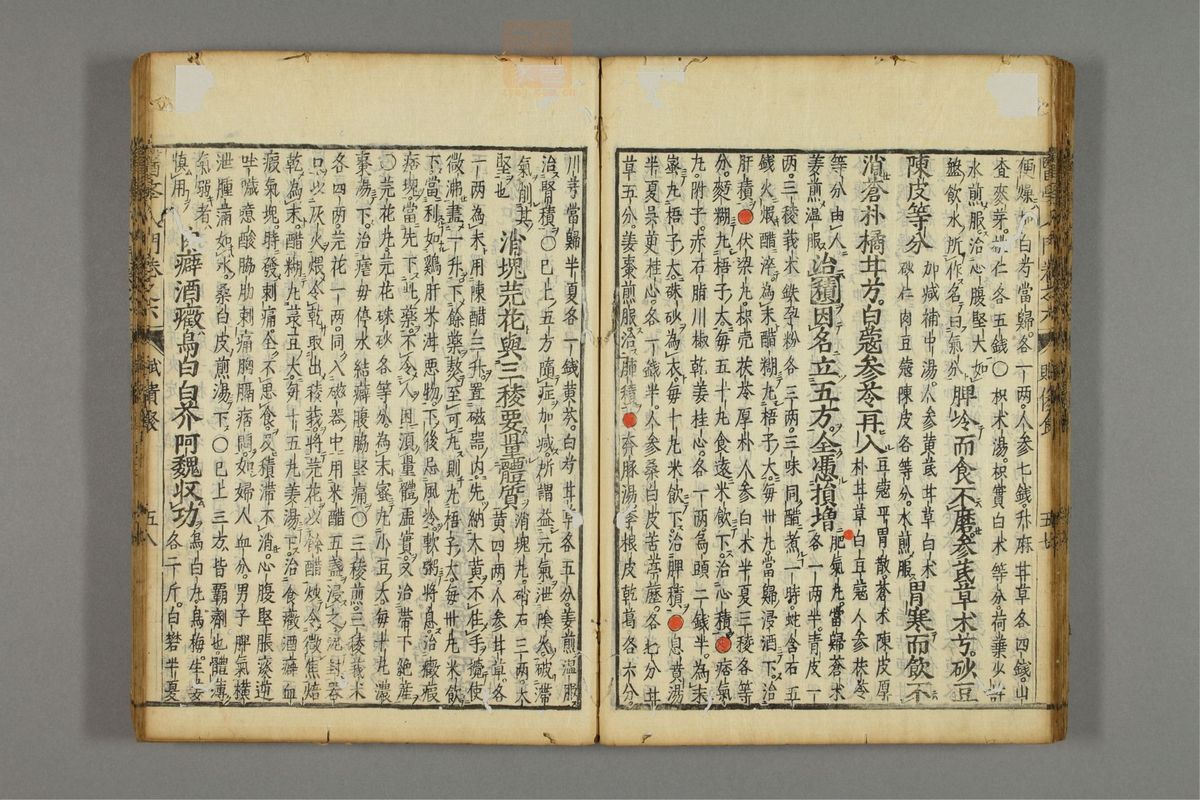 便燥加白芍當歸各一兩人參七錢升麻甘草各四錢山
查麥芽桃仁各五錢〇枳朮湯枳實白朮等分荷葉少許
水煎服治心腹堅大如
盤飲水所作名曰氣分
脾冷而食不磨參芪草朮芍砂豆
陳皮等分
加減補中湯人參黃芪甘草白朮
砂仁肉豆蔻陳皮各等分水煎服
胃寒而飲不
消蒼朴橘甘芍白蔻參苓再入
豆蔻平胃散蒼朮陳皮厚
朴甘草白豆蔻人參茯苓
等分由人
姜煎温服
治積因名立五方全憑損增
肥氣丸當歸蒼朮
各一兩半青皮一
兩三稜莪朮鉄孕粉各三兩三味同醋煮一時蛇含石五
錢火煆醋淬為末醋糊丸梧子大每卅丸當歸浸酒下治
肝積伏梁丸枳壳茯苓厚朴人參白朮半夏三稜各等
分麪糊丸梧子大每五十丸食遠米飲下治心積痞氣
丸附子赤石脂川椒乾姜桂心各一兩烏頭二錢半為末
蜜丸梧子大硃砂為衣每十丸米飲下治脾積息賁湯
半夏吳茱桂心各一錢半人參桑白皮苦葶藶各七分甘
草五分姜棗煎服治肺積奔豚湯李根皮乾葛各六分
川芎當歸半夏各一錢黃芩白芍甘草各五分姜煎温服
治腎積〇已上五方隨症加減所謂益元氣泄陰火破滯
氣削其
堅也
消塊芫花與三稜要量體質
消塊丸硝石三兩大
黃四兩人參甘草各
一兩為末用陳醋三升置磁器內先納大黃不住手攪使
微沸盡一升下餘藥熬至可丸則丸梧子大每卅丸米飲
下當利如鷄肝米泔惡物下後忌風冷軟粥將息治癥瘕
痞塊當先下此藥不令人困須量體虛實又治帶下絶產
〇芫花丸芫花硃砂各等分為末蜜丸小豆大每十丸濃
棗湯下治瘧母停水結癖腹脇堅痛〇三稜煎三稜莪朮
各四兩芫花一兩同入磁器中用米醋五盞浸之泥封器
口以灰火煨令乾取出稜莪將芫花以餘醋炒令微焦焙
乾為末醋糊丸菉豆大每十五丸姜湯下治食癥酒癖血
瘕氣塊時發刺痛全不思食及積滯不消心腹堅脹痰逆
吐噦噫酸脇肋刺痛胸膈痞悶如婦人血分男子脾氣橫
泄腫滿如水桑白皮煎湯下〇已上三方皆覇劑也體薄
氣弱者
慎用
食癖酒癥烏白白芥阿魏収功
烏白丸烏梅生姜
各一斤白礬半夏